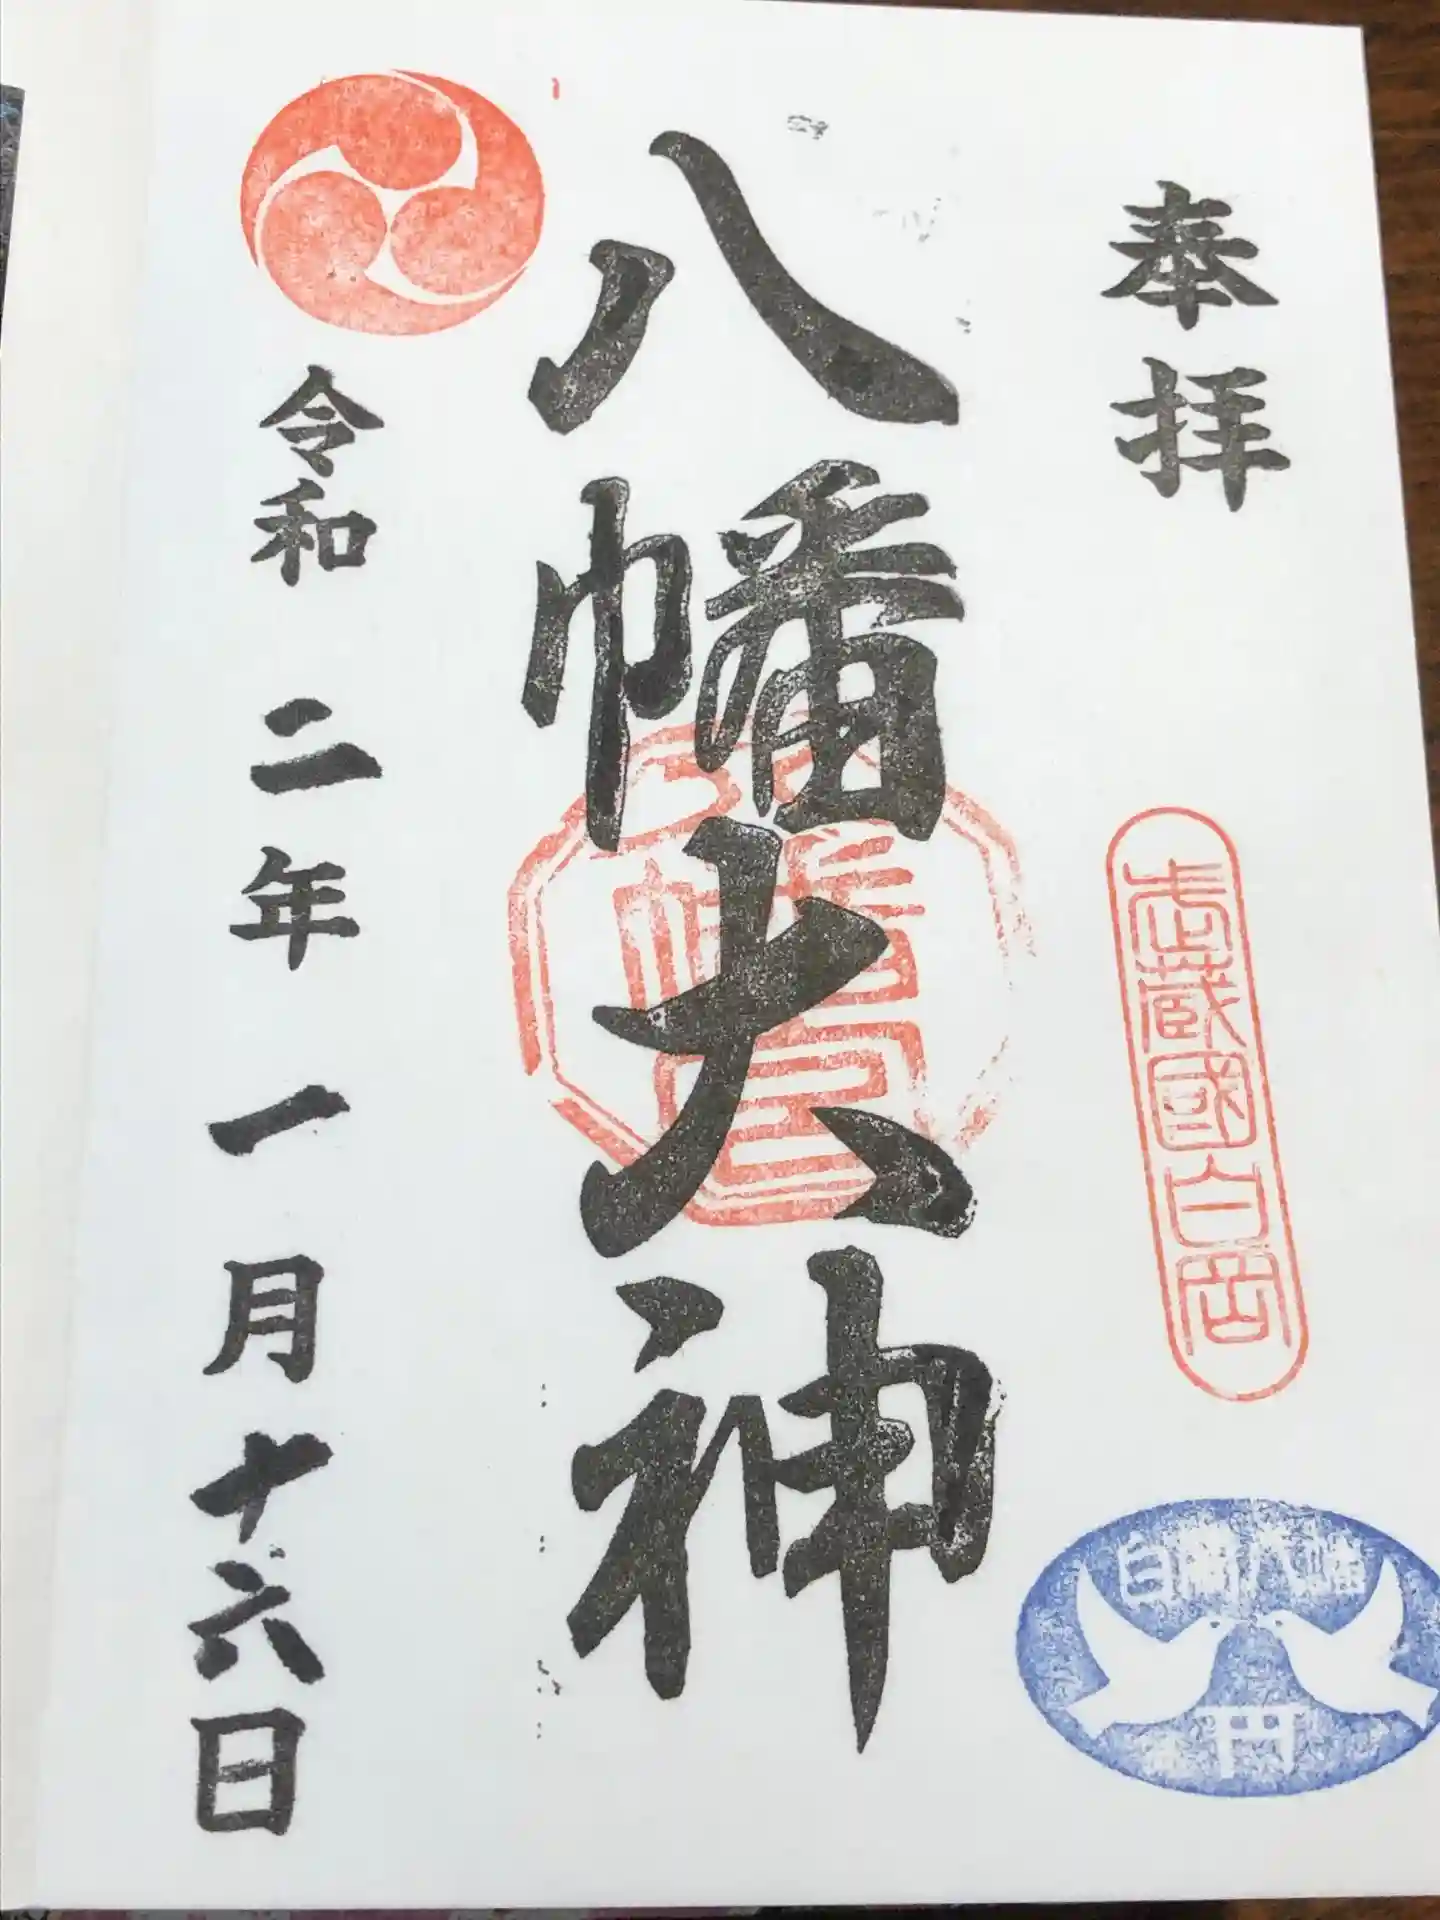 奉拝
武蔵國白岡
白岡八幡
八幡大神
令和二年一月十六日